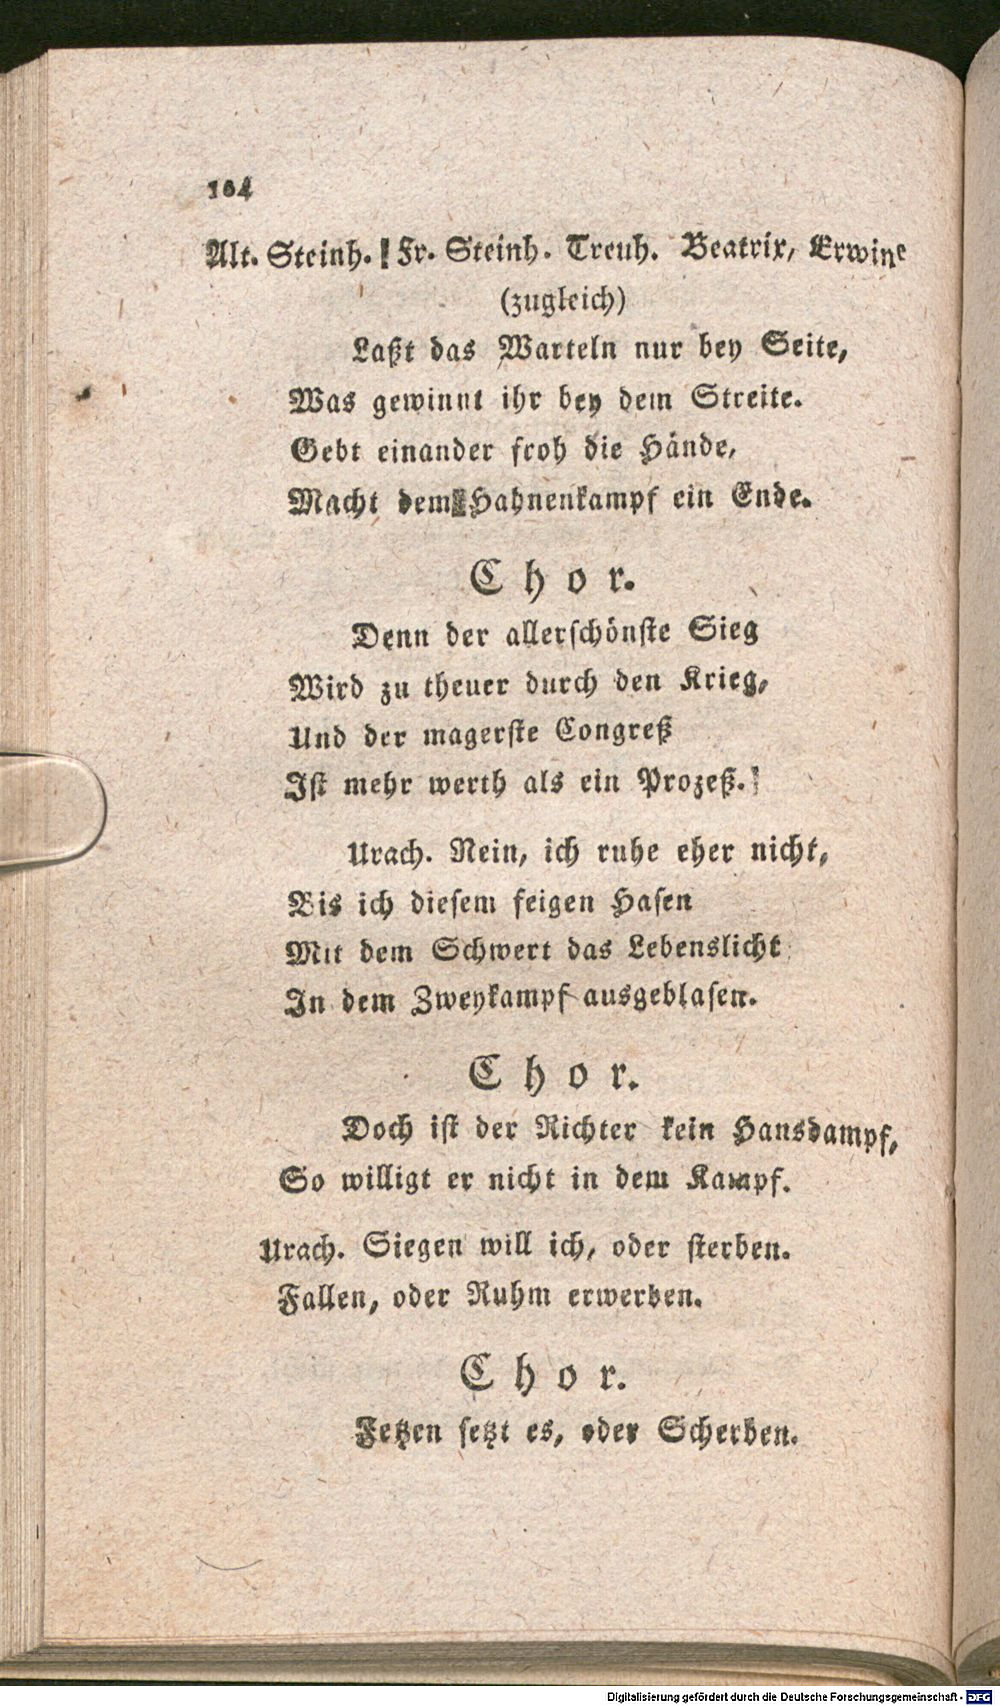 104
Alt. Steinh. Fr. Steinh. Treuh. Beatrix, Erwine
(zugleich)
Laßt das Warteln nur bey Seite,
Was gewinnt ihr bey dem Streite.
Gebt einander froh die Hände,
Macht dem Hahnenkampf ein Ende.
Chor.
Denn der allerschönste Sieg
Wird zu theuer durch den Krieg,
Und der magerste Congreß
Ist mehr werth als ein Prozeß.
Urach. Nein, ich ruhe eher nicht,
Bis ich diesem feigen Hasen
Mit dem Schwert das Lebenslicht
In dem Zweykampf ausgeblasen.
Chor.
Doch ist der Richter kein Hansdampf,
So willigt er nicht in dem Kampf.
Urach. Siegen will ich, oder sterben.
Fallen, oder Ruhm erwerben.
Chor.
Fetzen setzt es, oder Scherben.
Digitalisierung gefördert durch die Deutsche Forschungsgemeinschaft - DFG